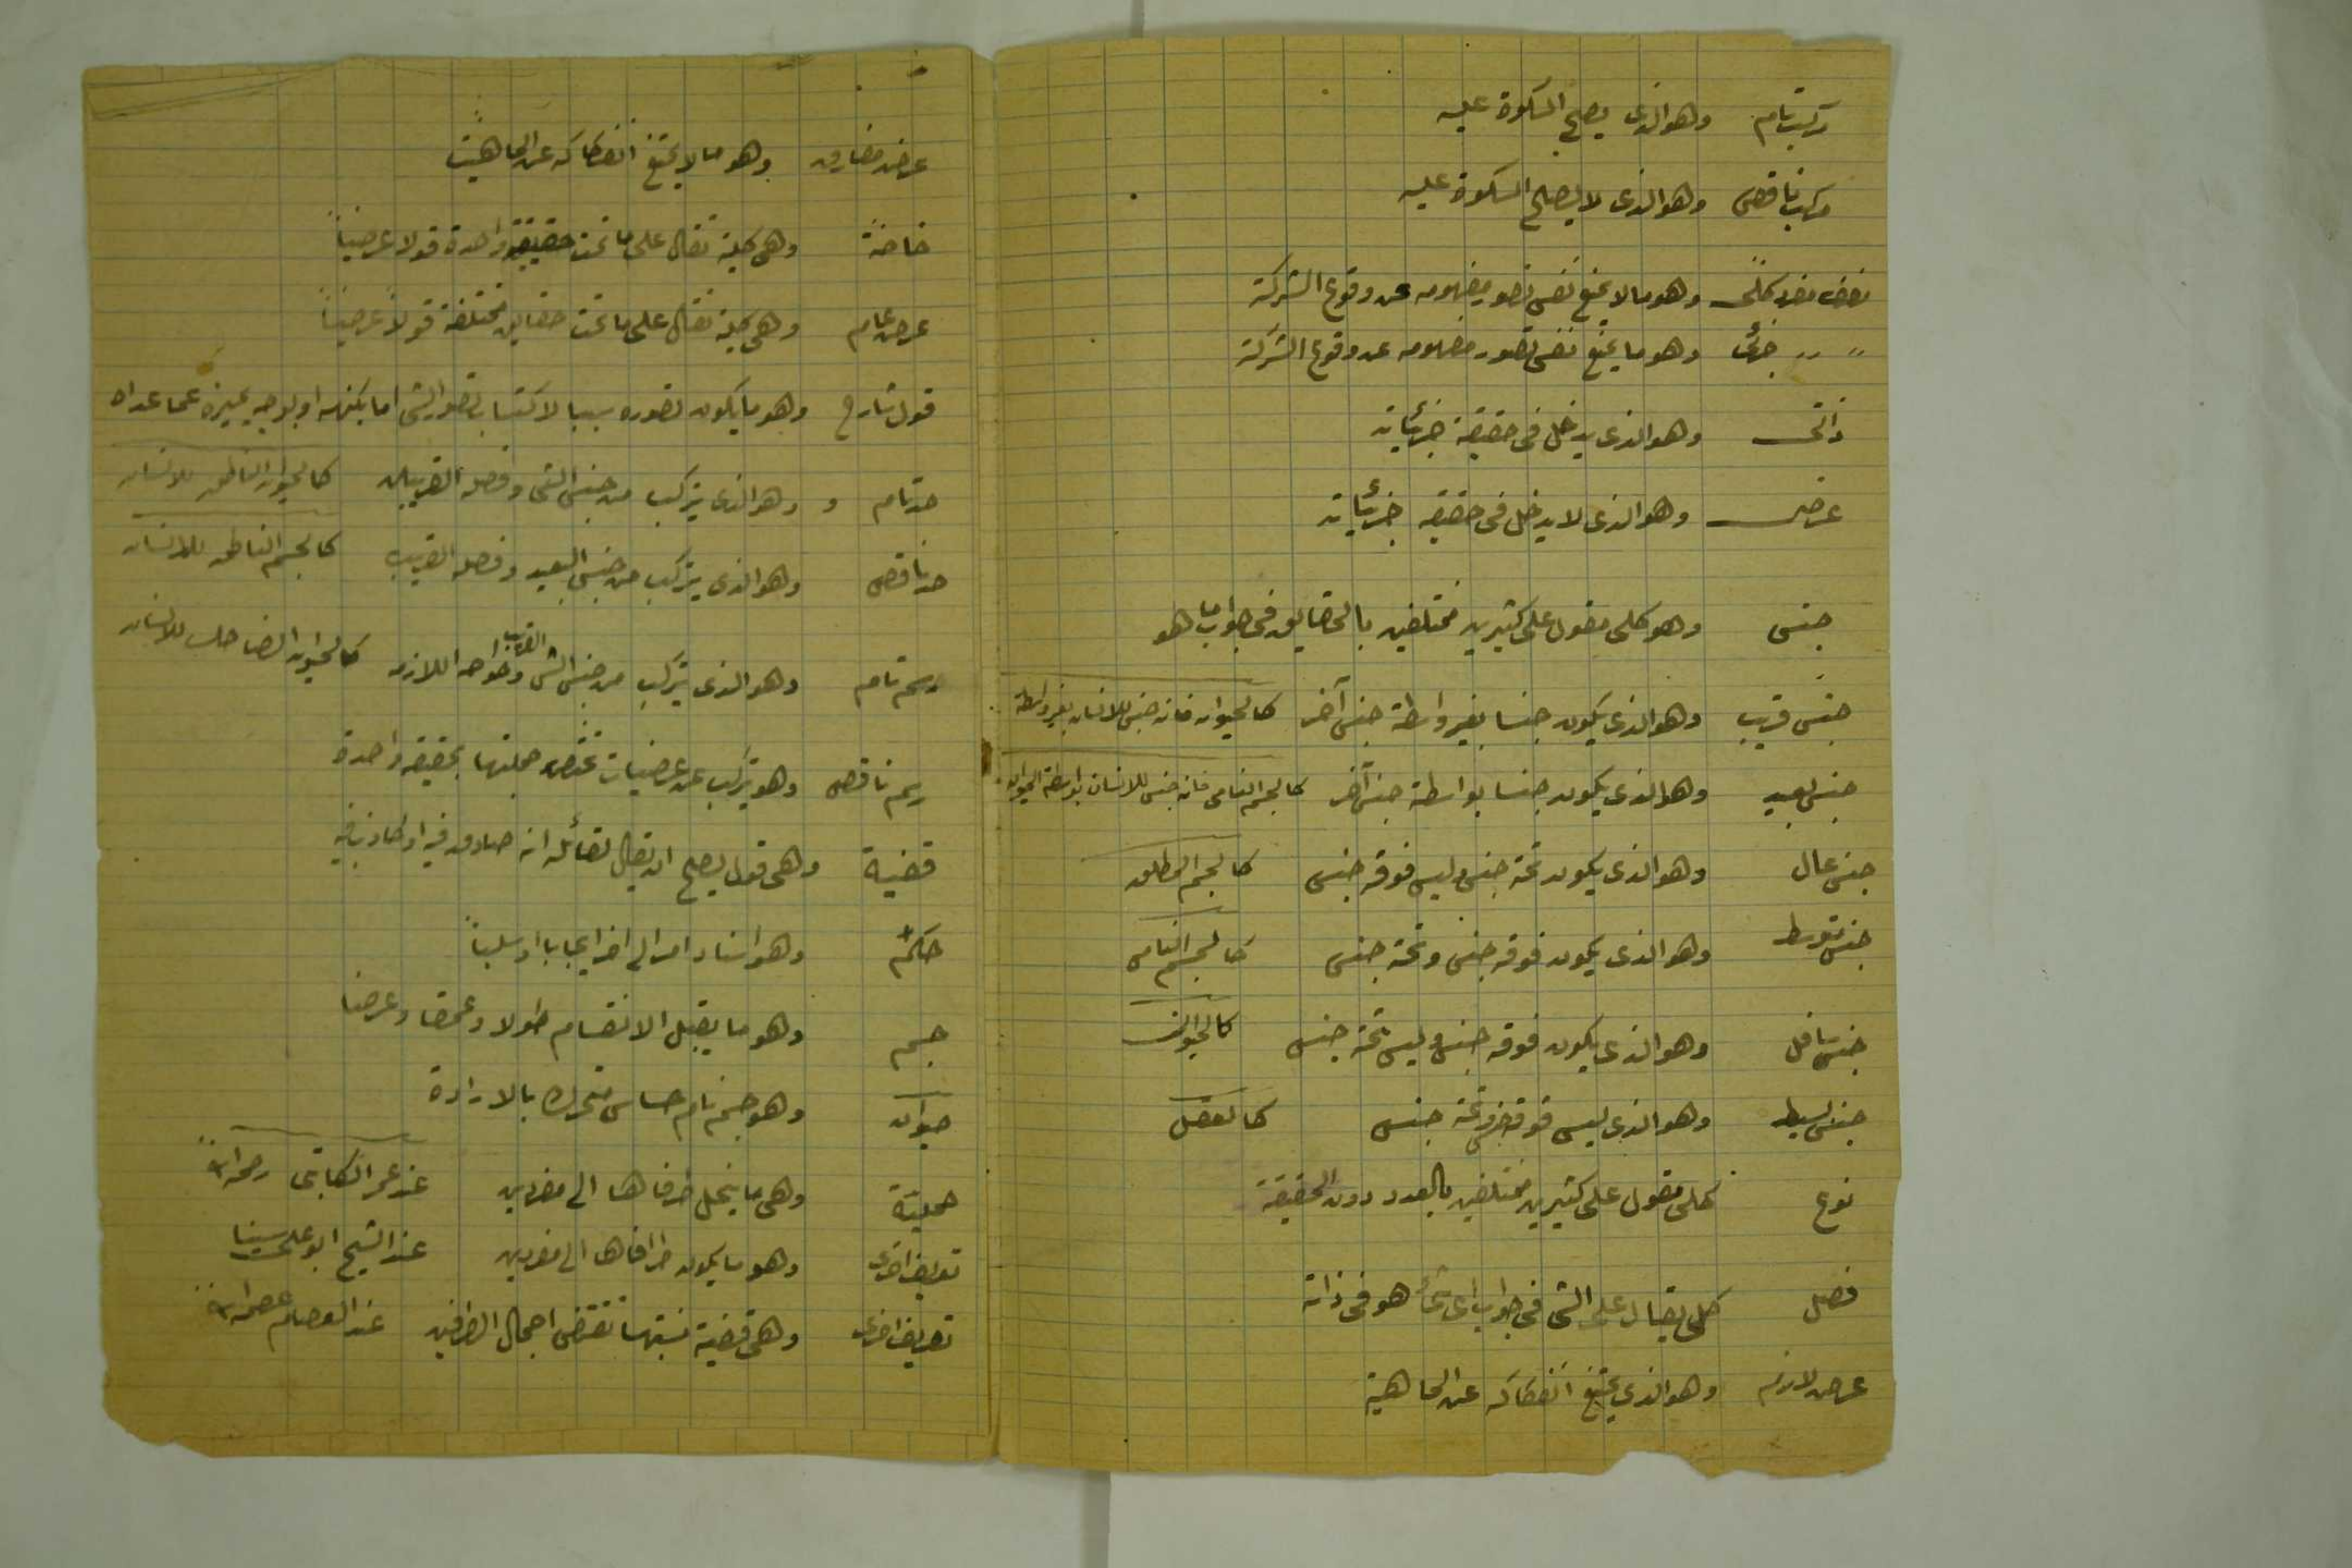 مركب تام وهو الذى يصلح السكوة عليه
مركب ناقص وهو الذى لا يصلح السكوة عليه
مفرد كلى وهو ما لا يمنع نفس تصور مفهومه عن وقوع الشركة
〃 〃 جزئى وهو ما يمنع نفس تصور مفهومه عن وقوع الشركة
ذاتى وهو الذى يدخل فى حقيقة جزئياته
عرضى وهو الذى لا يدخل فى حقيقة جزئياته
جنس وهو كلى مقول على كثيرين مختلفين بالحقايق فى جواب ما هو
جنس قريب وهو الذى يكون جنسا بغير واسطة جنس آخر كالحيوان فانه جنس للانسان بغير واسطة
جنس بعيد وهو الذى يكون جنسا بواسطة جنس آخر كالجسم النامى فانه جنس للانسان بواسطة الحيوان
جنس عال وهو الذى يكون تحته جنس وليس فوقه جنس كالجسم المطلق
جنس متوسط وهو الذى يكون فوقه جنس وتحته جنس كالجسم النامى
جنس سافل وهو الذى يكون فوقه جنس وليس تحته جنس كالحيوان
جنس بسيط وهو الذى ليس فوقه جنس وتحته جنس كالعقل
نوع كلى مقول على كثيرين مختلفين بالعدد دون الحقيقة
فصل كلى يقال على الشئ فى جواب اى شئ هو فى ذاته
عرض لازم وهو الذى يمتنع انفكاكه عن الماهية
عرض مفارق وهو ما لا يمتنع انفكاكه عن الماهيت
خاصة وهى كلية تقال على ما تحت حقيقة واحدة قولا عرضياً
عرض عام وهى كلية تقال على ما تحت حقايق مختلفة قولاً عرضياً
قول شارح وهو ما يكون تصوره سببا لاكتساب تصور الشئ اما بكنهه او بوجه يميزه عما عداه
حد تام و وهو الذى يتركب من جنس الشئ وفصله القريبين كالحيوان الناطق للانسان
حد ناقص وهو الذى يتركب من جنس البعيد وفصله القريب كالجسم الناطق للانسان
رسم تام وهو الذى يتركب من جنس الشئ القريب وخواصه اللازمه كالحيوان الضاحك للانسان
رسم ناقص وهو يتركب عن عرضيات تختص جملتها بحقيقة واحدة
قضية وهى قول يصلح ان يقال لقائله انه صادق فيه او كاذب فيه
حكم وهو اسناد امر الى اخر ايجابا او سلباً
جسم وهو ما يقبل الانقسام طولا وعمقا وعرضا
حيوان وهو جسم نام حساس متحرك بالارادة
حملية وهى ما ينحل طرفاها الى مفردين عند عمر الكاتبى رحمه الله
تعريف اخرى وهو ما يكون طرافاها الى مفردين عند الشيخ ابو على سينا
تعريف اخرى وهى قضية نسبتها تقتضى اجمال الطرفين عند العصام